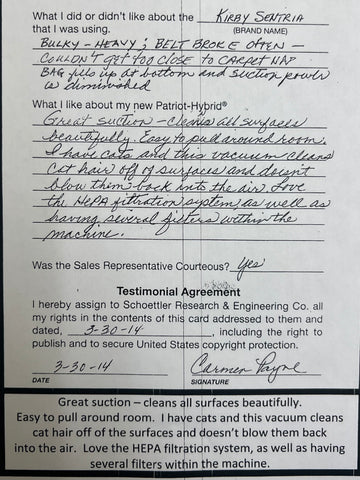 What I did or didn't like about the KIRBY SENTRIA
that I was using. (BRAND NAME)
BULKY - HEAVY; BELT BROKE OFTEN -
COULDN'T GET TOO CLOSE TO CARPET NAP
BAG fills up at bottom and suction power
is diminished
What I like about my new Patriot-Hybrid®
Great suction - cleans all surfaces
beautifully. Easy to pull around room.
I have cats and this vacuum cleans
cat hair off of surfaces and doesn't
blow them back into the air. Love
the HEPA filtration system, as well as
having several filters within the
machine.
Was the Sales Representative Courteous? Yes
Testimonial Agreement
I hereby assign to Schoettler Research & Engineering Co. all
my rights in the contents of this card addressed to them and
dated, 3-30-14, including the right to
publish and to secure United States copyright protection.
3-30-14 Carmen Payne
DATE SIGNATURE
Great suction – cleans all surfaces beautifully.
Easy to pull around room. I have cats and this vacuum cleans
cat hair off of the surfaces and doesn't blow them back
into the air. Love the HEPA filtration system, as well as having
several filters within the machine.